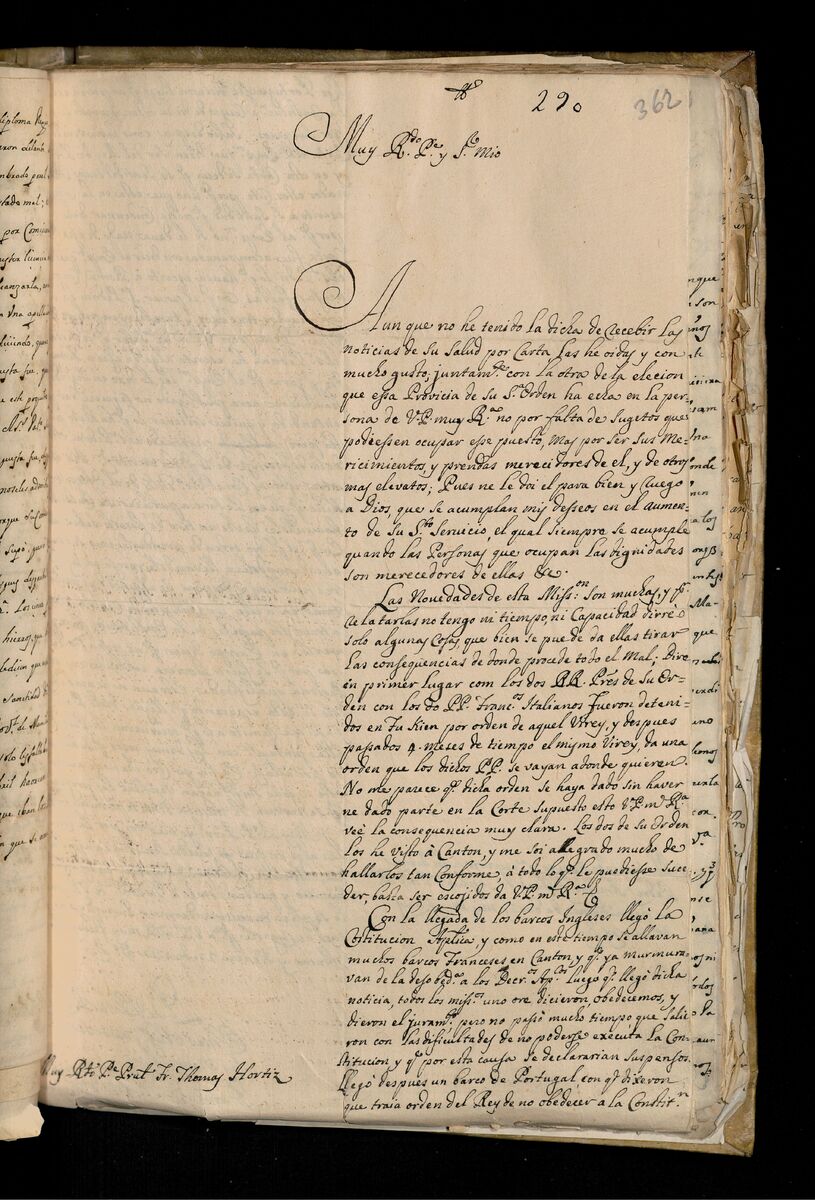 290
362
Muy R.do P.e y S.r Mio
Aun que no he tenido la dicha de recebir las
noticias de su salud por Carta las he oidas y con
mucho gusto; juntam.te con la otra de la elecion
que essa Provicia de su S.a Orden ha echa en la per-
sona de V.P. muy R.a no por falta de sugetos que
podiessen ocupar esse puesto, mas por ser sus Me-
ricimientos, y prendas merecidores de el, y de otros
mas elevatos; Pues ne le doi el para bien y ruego
a Dios, que se acumplan mis desseos en el aumen-
to de su S.to Servicio, el qual siempre se acumple
quando las Personas que ocupan las dignidades
son merecedores de ellas &c.
Las Novedades de esta Miss.on son muchas, y p.a
relatarlas no tengo ni tiempo, ni Capacidad dirrè
solo algunas Cosas, que bien se puede da ellas tirar
las consequencias de donde procede todo el Mal; Dire
en primer lugar com los dos RR. P.res de su Or-
den con los do PP. Franc.os Italianos fueron deteni-
dos en Fu Kien por orden de aquel Virey, y despues
passados 4. meses de tiempo el mismo Virey, da una
orden que los dichos P.P. se vayan adonde quieren.
No me parece q.e dicha orden se haya dado sin haver
ne dado parte en la Corte supuesto esto V.P. m.y R.a
veè la consequencia muy clara. Los dos de su Orden
los he visto à Canton, y me soi allegrado mucho de
hallarlos tan Conforme, à todo lo q.e le puediesse suce-
der, basta ser escojidos da V.P. m.y R.a
Con la llegada de los barcos Ingleses llegò la
Costitucion Aplica, y como en este tiempo se allavan
muchos barcos Franceses en Canton, y q.e ya murmura-
van de la desobed.a a los Decr.os Ap.cos luego q.e llegò dicha
noticia, todos los miss.os uno ore dicieron, obedecemos, y
dieron el juram.to pero no passò mucho tiempo que salie-
ron con las dificultades de no poderse executa la Con-
stitucion y q.e por esta causa se declararian suspensos.
llegò despues un barco de Portugal con q.e dixeron
que traia orden del Rey de no obedecer a la Constit.n
Muy R.do P.e Pra.l Fr. Thomas Hortiz